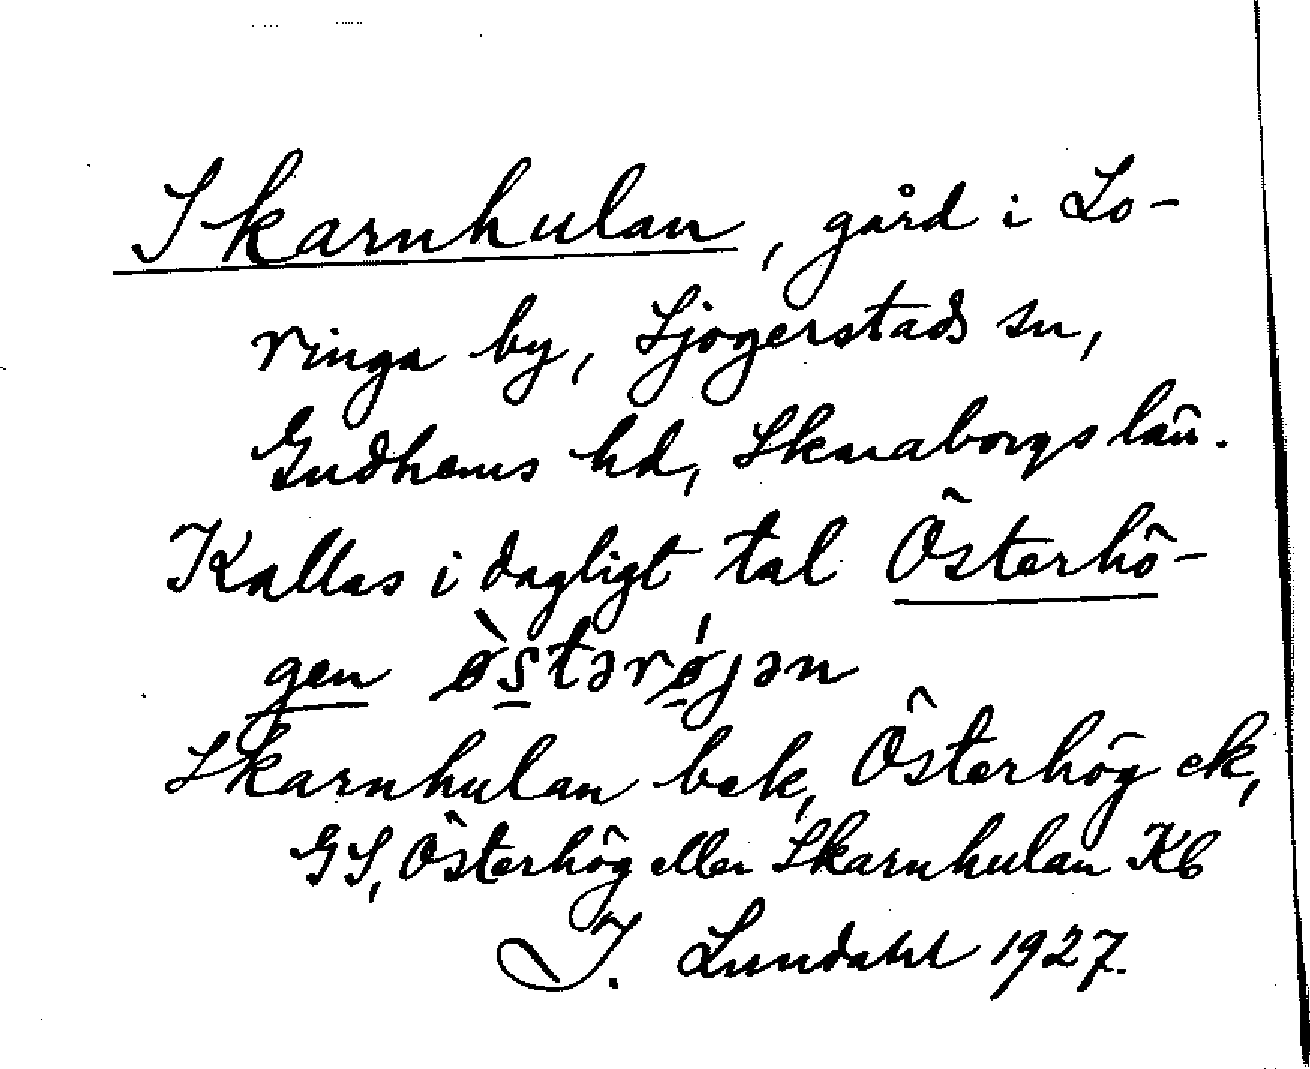 Skarnhulan, gård i Lo-
ringa by, Sjogerstads sn,
Gudhems hd, Skaraborgs län.
Kallas i dagligt tal Österhö-
gen ø̀stərǿjən
Skarnhulan bek, Österhög ek,
GS, Österhög eller Skarnhulan Kb
I. Lundahl 1927.